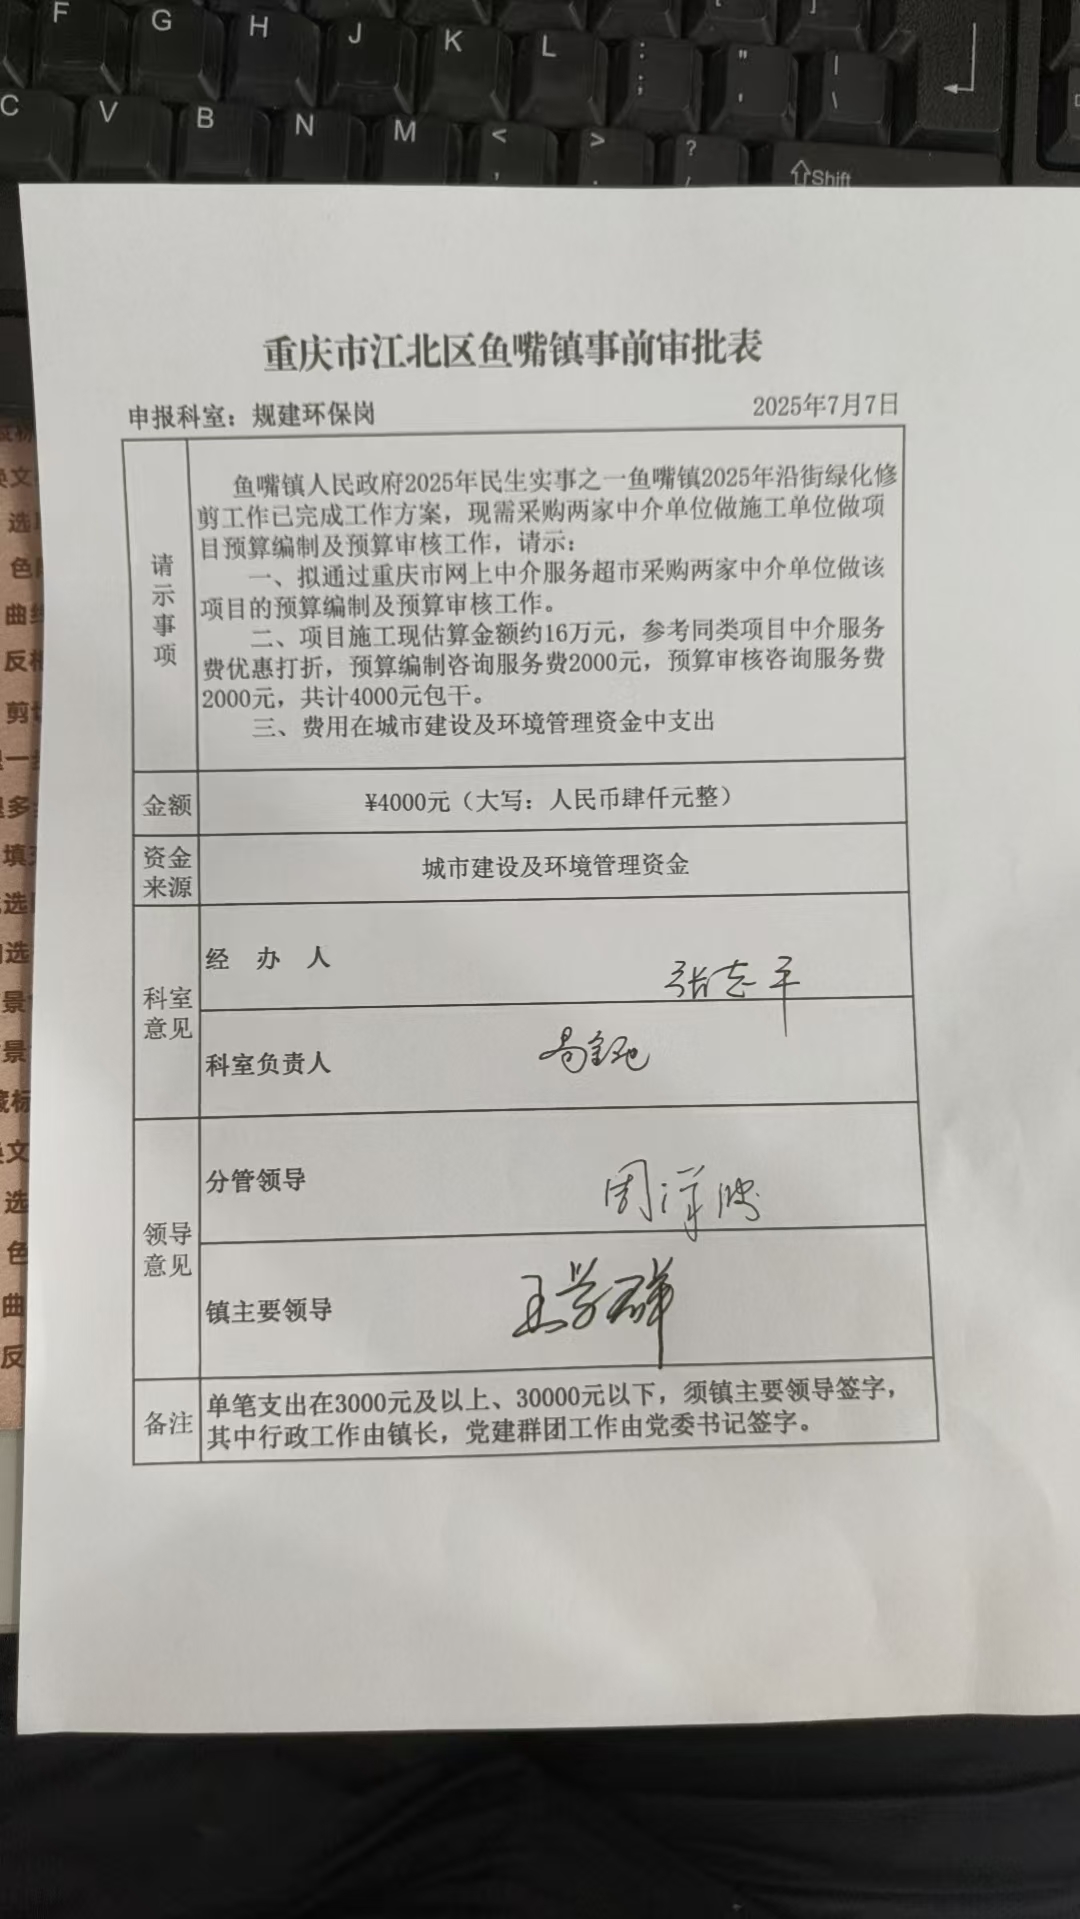 F G H J K L : ; " ' | \
C V B N M < , > . ? /
⇧Shift
重庆市江北区鱼嘴镇事前审批表
申报科室：规建环保岗
2025年7月7日
请示事项
鱼嘴镇人民政府2025年民生实事之一鱼嘴镇2025年沿街绿化修
剪工作已完成工作方案，现需采购两家中介单位做施工单位做项
目预算编制及预算审核工作，请示：
一、拟通过重庆市网上中介服务超市采购两家中介单位做该
项目的预算编制及预算审核工作。
二、项目施工现估算金额约16万元，参考同类项目中介服务
费优惠打折，预算编制咨询服务费2000元，预算审核咨询服务费
2000元，共计4000元包干。
三、费用在城市建设及环境管理资金中支出
金额
¥4000元（大写：人民币肆仟元整）
资金
来源
城市建设及环境管理资金
科室
意见
经 办 人
张志平
科室负责人
领导
意见
分管领导
周洋
镇主要领导
王学群
备注
单笔支出在3000元及以上、30000元以下，须镇主要领导签字，
其中行政工作由镇长，党建群团工作由党委书记签字。